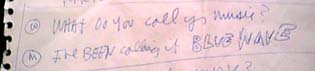 (W) WHAT DO YOU call yr music?
(M) I've BEEN calling it BLUE WAVE
music?